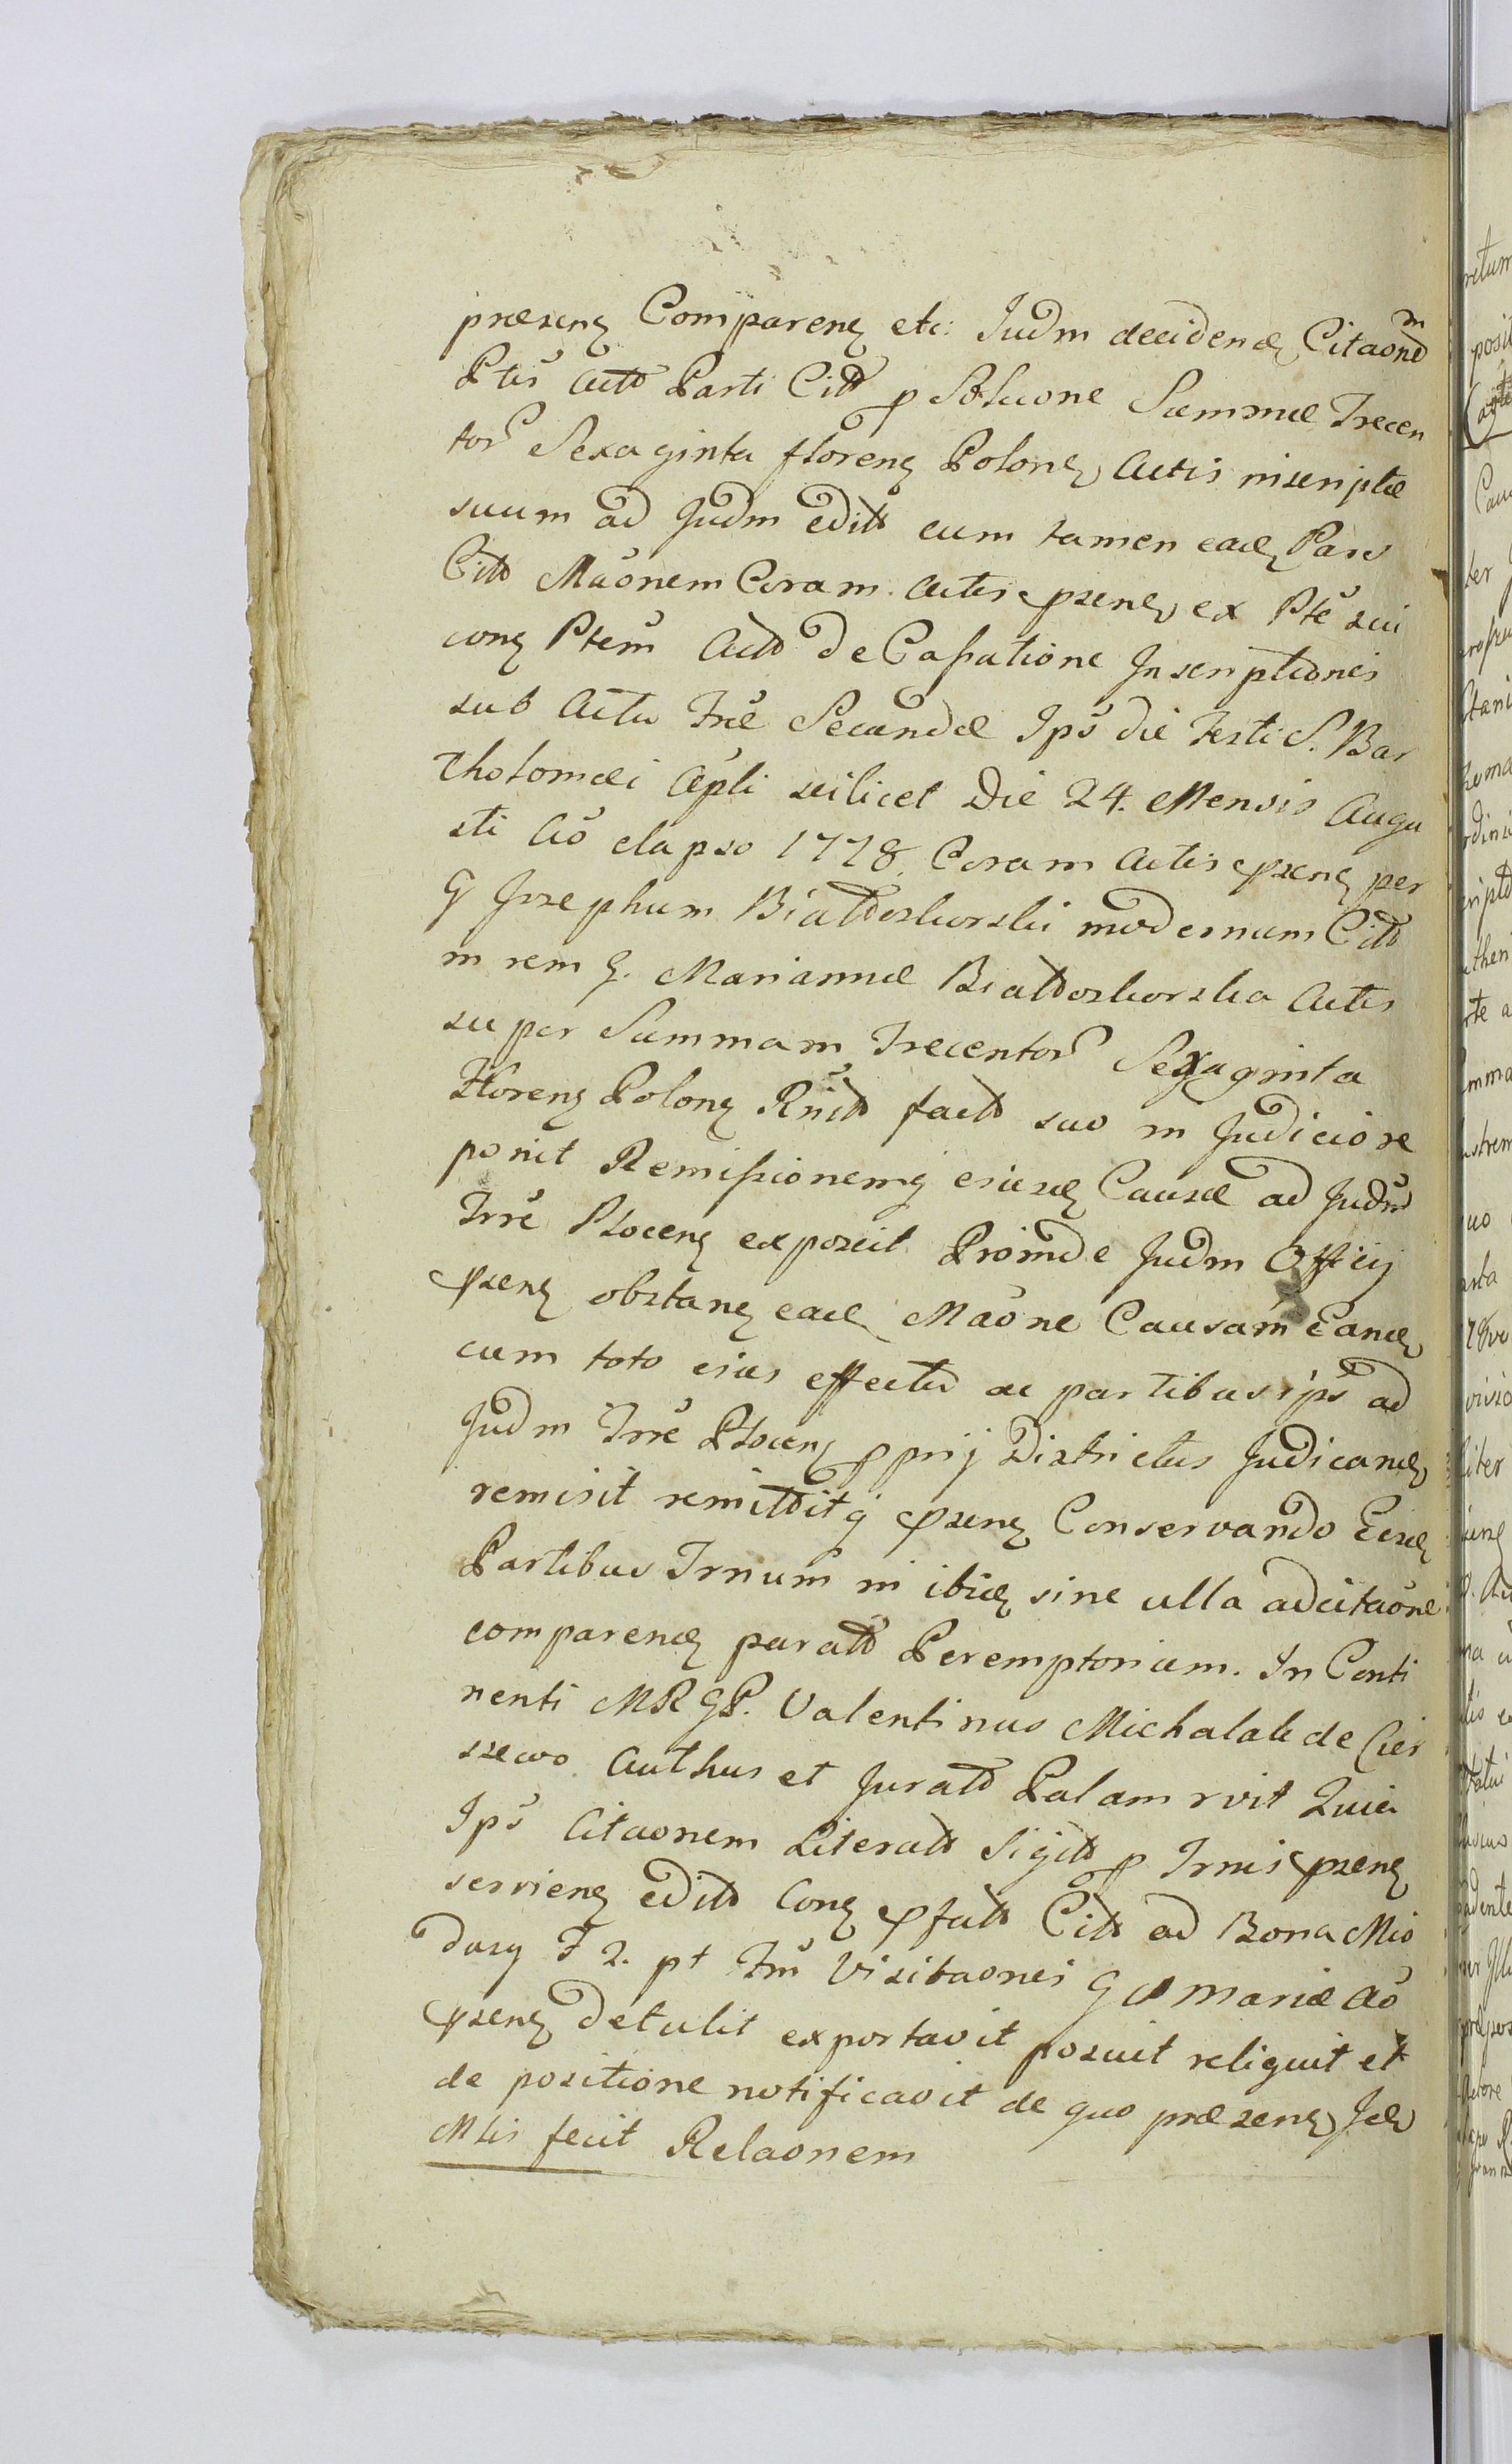 præsenꝫ Comparenꝫ etc: Judm decidendꝫ Citaonem
Ptis Actt Parti Citt p Soluone Summæ Trecen
tor Sexaginta florenꝫ Polonꝫ Actis inscriptæ
suum ad Judm editt cum tamen eadꝫ Pars
Citt Maonem Coram Actis prꝫsenꝫ ex Pte sui
conꝫ Ptem Actt de Cassatione Inscriptionis
sub Actu Fræ Secundæ Ips die Festi S. Bar
tholomæi Apli scilicet Die 24. Mensis Augu
sti Ao elapso 1778. Coram Actis prꝫsenꝫ per
G Josephum Białoskorski modernum Citt
in rem G. Mariannæ Białoskorska Actis
super Summam Trecentor Sexaginta
Florenꝫ Polonꝫ Rnitt factt suo in Judicio re
ponit Remissionemq eiusdꝫ Causæ ad Judm
Trre Plocenꝫ exposcit Proinde Judm Officij
prꝫsenꝫ obstanꝫ eadꝫ Maone Causam Eandꝫ
cum toto eius effectu ac partibus ips ad
Judm Trre Plocenꝫ pprij Districtus Judicandꝫ
remisit remittitq prꝫsenꝫ Conservando Eisdꝫ
Partibus Trnum in ibidꝫ sine ulla adcitaone
comparendꝫ paratt Peremptorium. In Conti
nenti MRGP. Valentinus Michalak de Cier
szewo Authus et Juratt Palam rvit Quia
Ips Citaonem Literatt Sigitt p Trnis prꝫsenꝫ
servienꝫ editt Conꝫ prꝫfatt Citt ad Bona Mio
dusy F 2. pt Fm Visitaonis G V Mariæ Ao
prꝫsenꝫ detulit exportavit posuit reliquit et
de positione notificavit de quo præsenꝫ Jdꝫ
Mlis fecit Relaonem